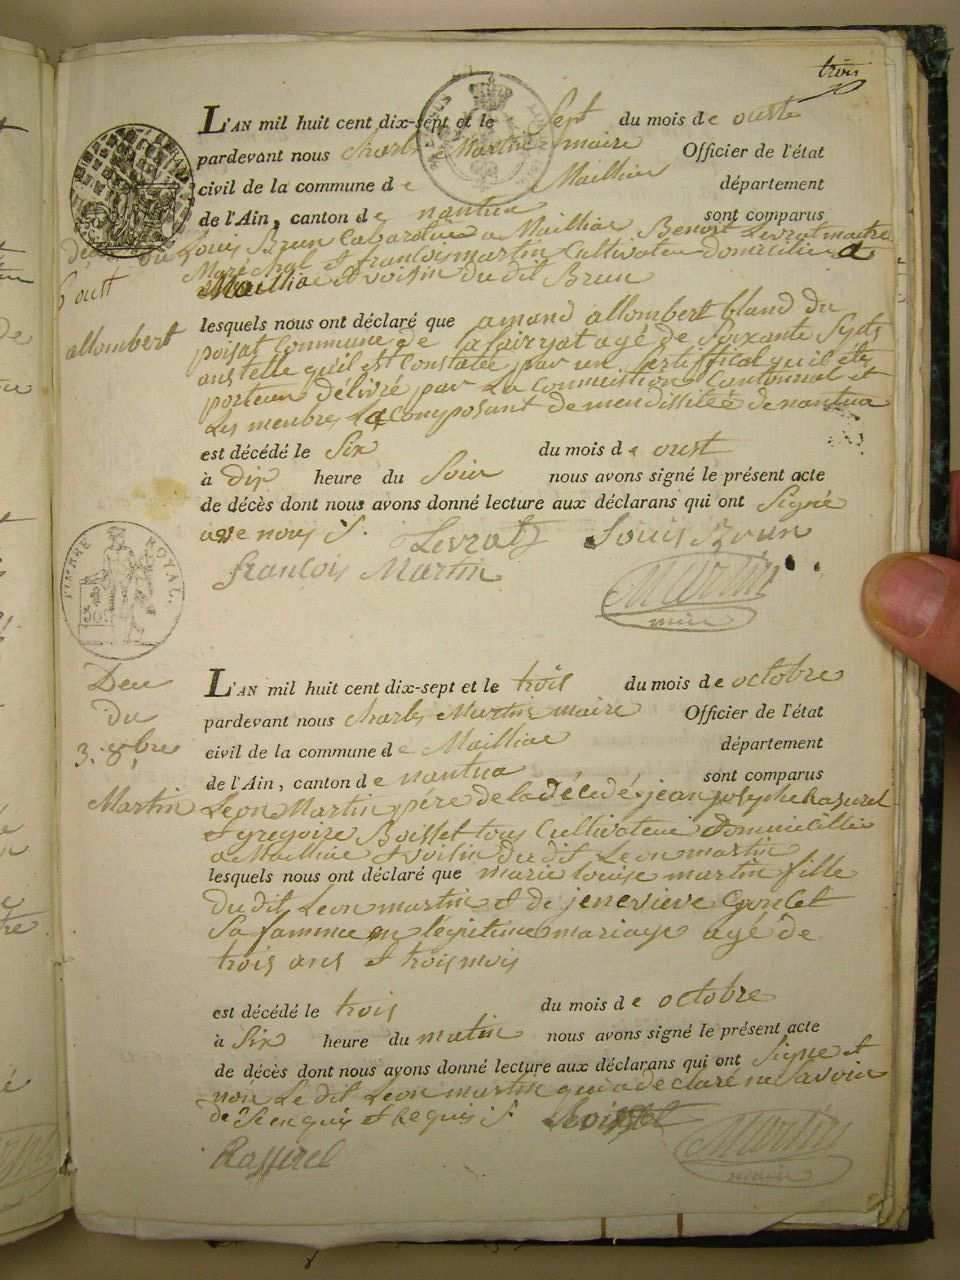 trois
L'AN mil huit cent dix-sept et le Sept du mois de oust
pardevant nous Charle Martin maire Officier de l'état
civil de la commune de Maillia département
de l'Ain, canton de nantua sont comparus
Louis Brun Cabaretier a Mailliac Benoit Levrat maitre
Maréchal et francois martin Cultivateur domicilié a
Mailliac et voisin du dit Brun
6 oust
allombert
lesquels nous ont déclaré que amand allombert bland du
poisat Commune de lalairyat agé de Soixante Sept
ans telle qu'il est Constatée par un certiffical qu'il été
porteur délivré par La Commission Cantonnal et
Les menbres La Composant de mendissiteé de nantua
est décédé le Six du mois de oust
à dix heure du Soir nous avons signé le présent acte
de décès dont nous avons donné lecture aux déclarans qui ont Signé
avec nous S.
Levrat Louis Brun
francois Martin
Martin
maire
TIMBRE ROYAL.
Deu
du
3. 8bre
Martin
L'AN mil huit cent dix-sept et le trois du mois de octobre
pardevant nous Charle Martin maire Officier de l'état
civil de la commune de Mailliac département
de l'Ain, canton de nantua sont comparus
Leon Martin pére de la décédé jean joseph Rassurel
et gregoire Boisset tous Cultivateur domicillié
a Mailliac et voisin du dit Leon martin
lesquels nous ont déclaré que marie louise martin fille
du dit Leon martin et de jenevieve Goncet
Sa famme en légitime mariage agé de
trois ans et trois mois
est décédé le trois du mois de octobre
à Six heure du matin nous avons signé le présent acte
de décès dont nous avons donné lecture aux déclarans qui ont Signe et
non Le dit Leon martin qui a déclaré ne Savoir
de ce enquis et Requis S. Boisset
Rassurel
Martin
maire